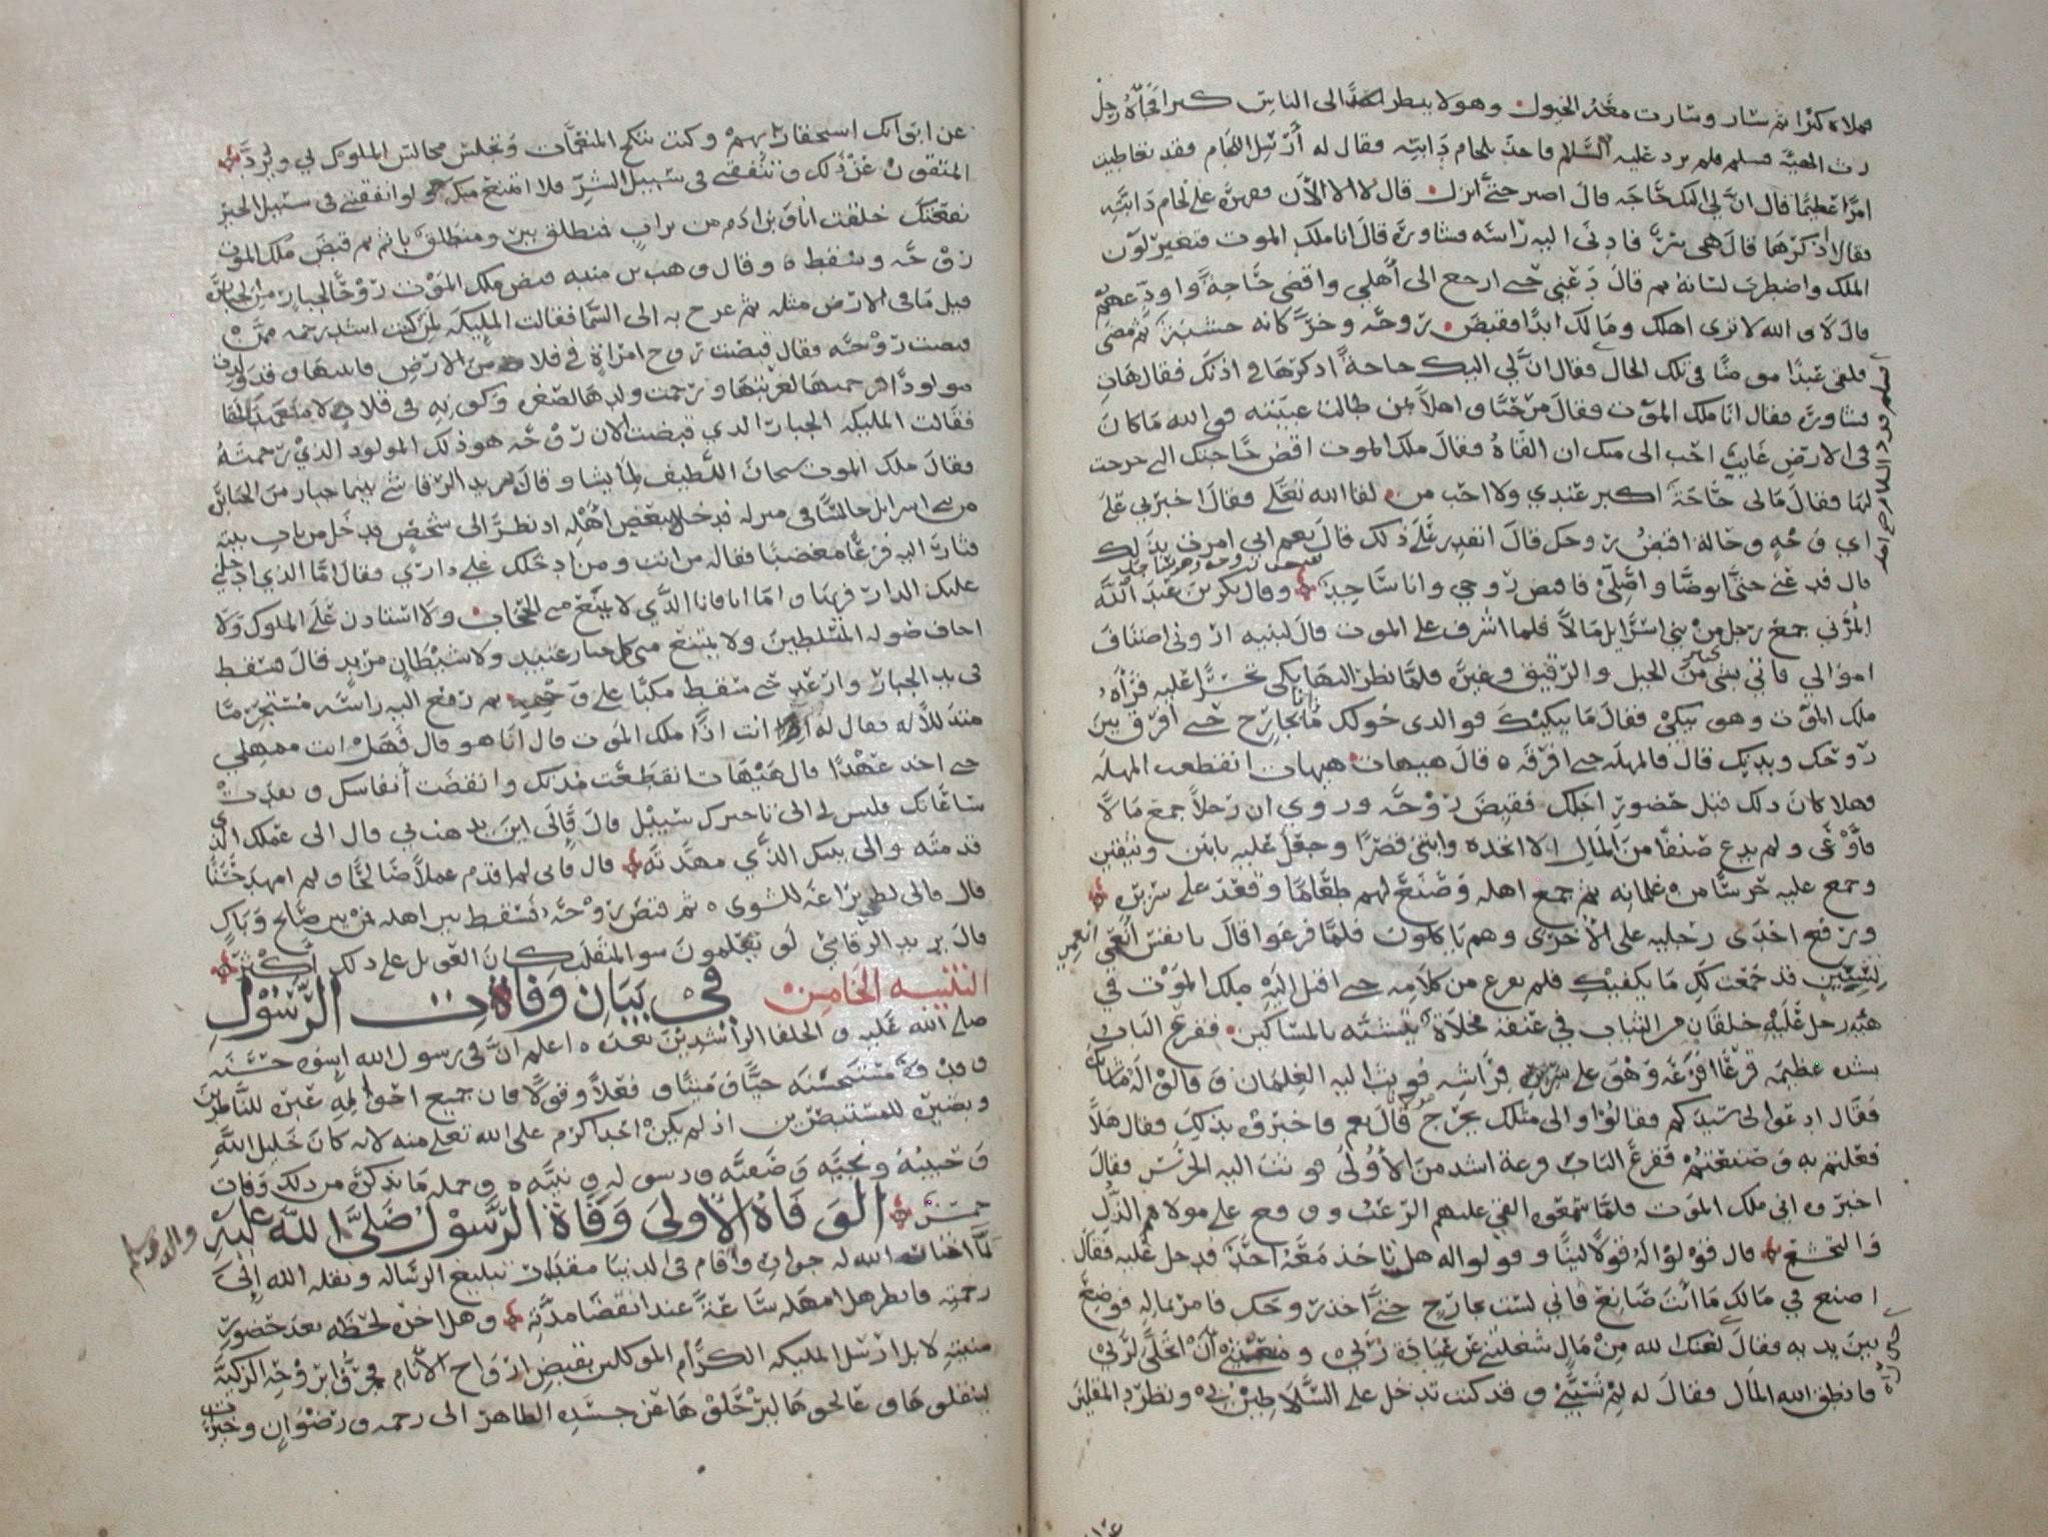 فملاه كبرًا ثم سار وسارت معه الخيول وهو لا ينظر الى الناس كبرا فجاءه رجل
رث الهيئة فسلم فلم يرد عليه السلام فاخذ بلجام دابته فقال له ارسل اللجام فقد تعاطيت
امرًا عظيمًا قال ان لي اليك حاجه قال اصبر حتى انزل قال لا الا الآن فقهره على لجام دابته
فقال اذكرها قال هي سر فادنى اليه راسه فساوره قال انا ملك الموت فتغير لون
الملك واضطرب لسانه ثم قال دعني حتى ارجع الى اهلي واقضي حاجة واودعهم
قال لا والله لا ترى اهلك ومالك ابدا فقبض روحه وخر كانه خشبة ثم مضى
فلقي عبدًا مومنًا في تلك الحال فقال ان لي اليك حاجة اذكرها في اذنك فقال هات
فساوره فقال انا ملك الموت فقال مرحبًا واهلاً بمن طالت غيبته فوالله ما كان
في الارض غايب احب الى منك ان القاه فقال ملك الموت اقض حاجتك التي خرجت
لها فقال مالي حاجة اكبر عندي ولا احب من لقا الله تعالى فقال اخبرني على
اي وجه وحالة اقبض روحك قال اتقدر على ذلك قال نعم اني امرت بذلك
قال فدعني حتى اتوضا واصلي فاقبض روحي وانا ساجد وقال بكر بن عبد الله
المزني جمع رجل من بني اسرايل مالاً فلما اشرف على الموت قال لبنيه اروني اصناف
اموالي فاتي بشي كثير من الخيل والرقيق وغيره فلما نظر اليها بكى تحسرًا عليه فرآه
ملك الموت وهو يبكي فقال ما يبكيك فوالذي خولك ما انا بخارج حتى افرق بين
روحك وبدنك قال فالمهله حتى افرقه قال هيهات هيهات انقطعت المهله
فهلا كان ذلك قبل حضور اجلك فقبض روحه وروي ان رجلاً جمع مالاً
فاوعى ولم يدع صنفًا من المال الا اتخذه وابتنى قصرًا وجعل عليه بابين وثيقين
وجمع عليه حرسًا من غلمانه ثم جمع اهله وصنع لهم طعامًا وقعد على سريره
ورفع احدى رجليه على الأخرى وهم ياكلون فلما فرغوا قال يا نفس انعمي
لسنين قد جمعت لك ما يكفيك فلم يفرغ من كلامه حتى اقبل اليه ملك الموت في
هيه رجل عليه خلقان من الثياب في عنقه مخلاة يتشبه بالمساكين فقرع الباب
بشده عظيمه قرعًا افزعه وهو على سريره فراشه فوثب اليه الغلمان وقالوا له ما شانك
فقال ادعوا لي سيدكم فقالوا والى مثلك يخرج قال نعم فاخبروه بذلك فقال هلا
فعلتم به وصنعتم فقرع الباب قرعة اشد من الأولى فوثب اليه الحرس فقال
اخبروه اني ملك الموت فلما سمعوه القي عليهم الرعب ووقع على مولاهم الذل
والتخشع قال قولوا له قولاً لينًا وقولوا له هل ياخذ معه احدًا فدخل عليه فقال
اصنع في مالك ما انت صانع فاني لست بخارج حتى اخذ روحك فامر بماله فوضع
بين يديه فقال لعنك الله من مال شغلتني عن عبادة ربي ومنعتني ان اتخلى لربي
فانطق الله المال فقال له لم تسبني وقد كنت تدخل على السلاطين بي
عن ابوابك استحقارًا بهم وكنت تنكح المنعمات وتجلس مجالس الملوك بي وترد
المتقون عن ذلك وتنفقني في سبيل الشر فلا امتنع منك ولو انفقتني في سبيل الخير
نفعتك خلقت انا وابن ادم من تراب فمنطلق ببر ومنطلق باثم ثم قبض ملك الموت
روحه وسقط وقال وهب بن منبه قبض ملك الموت روح الجبار من الجبابرة
قبل ما في الارض مثله ثم عرج به الى السما فقالت المليكه لمن كنت اشد رحمه ممن
قبضت روحه فقال قبضت روح امراة في فلاة من الارض فاتيتها وقد ولدت
مولودًا فرحمتها لغربتها ورحمت ولدها لصغره وكونه في فلاة لا متعهد له بها
فقالت المليكه الجبار الذي قبضت الان روحه هو ذلك المولود الذي رحمته
فقال ملك الموت سبحان اللطيف لما يشا وقال يزيد الرقاشي بينما جبار من الجبابرة
من بني اسرايل جالسًا في منزله قد خلا ببعض اهله اذ نظر الى شخص قد دخل من باب بيته
فثار اليه فزعًا مغضبًا فقال له من انت ومن ادخلك على داري فقال اما الذي ادخلني
عليك الدار فربها واما انا فانا الذي لا يمنع مني الحجاب ولا استاذن على الملوك ولا
اخاف صوله المتسلطين ولا يمتنع مني كل جبار عنيد ولا شيطان مريد قال فسقط
في يد الجبار وارعد حتى سقط مكبًا على وجهه ثم رفع اليه راسه مستجيرًا
متذللاً له فقال له انت اذًا ملك الموت قال انا هو قال فهل انت ممهلي
حتى احدث عهدًا قال هيهات انقطعت مدتك وانقضت انفاسك ونفدت
ساعاتك فليس لي الى تاخيرك سبيل قال فالى اين تذهب بي قال الى عملك الذي
قدمته والى بيتك الذي مهدته قال فاني لم اقدم عملاً صالحًا ولم امهد حسنًا
قال فالى لظى نزاعة للشوى ثم قبض روحه فسقط بين اهله فمن بين صايح وباك
قال يزيد الرقاشي لو تعلمون سو المنقلب كان العويل على ذلك اكثر
التنبيه الخامس في بيان وفات الرسول
صلى الله عليه والخلفا الراشدين بعده اعلم ان في رسول الله اسوه حسنه
وقدوة مستحسنه حيًا وميتًا وفعلاً وقولاً فان جميع احواله عبره للناظرين
وبصيره للمستبصرين اذ لم يكن احد اكرم على الله تعلى منه لانه كان خليل الله
وحبيبه ونجيه وصفيه ورسوله ونبيه وجمله ما نذكره من ذلك وفات
خمس الوفاة الأولى وفاة الرسول صلى الله عليه واله وسلم
لما اختار الله له جواره واقام في الدنيا مقدار تبليغ الرساله ونقله الله الى
رحمته فانظر هل امهله ساعة عند انقضا مدته وهل اخره لحظه بعد حضور
منيته لا بل ارسل المليكه الكرام الموكلين بقبض ارواح الأنام فجدوا بروحه الزكيه
لينقلوها وعالجوها ليرحلوها عن جسده الطاهر الى رحمه ورضوان وخيرات